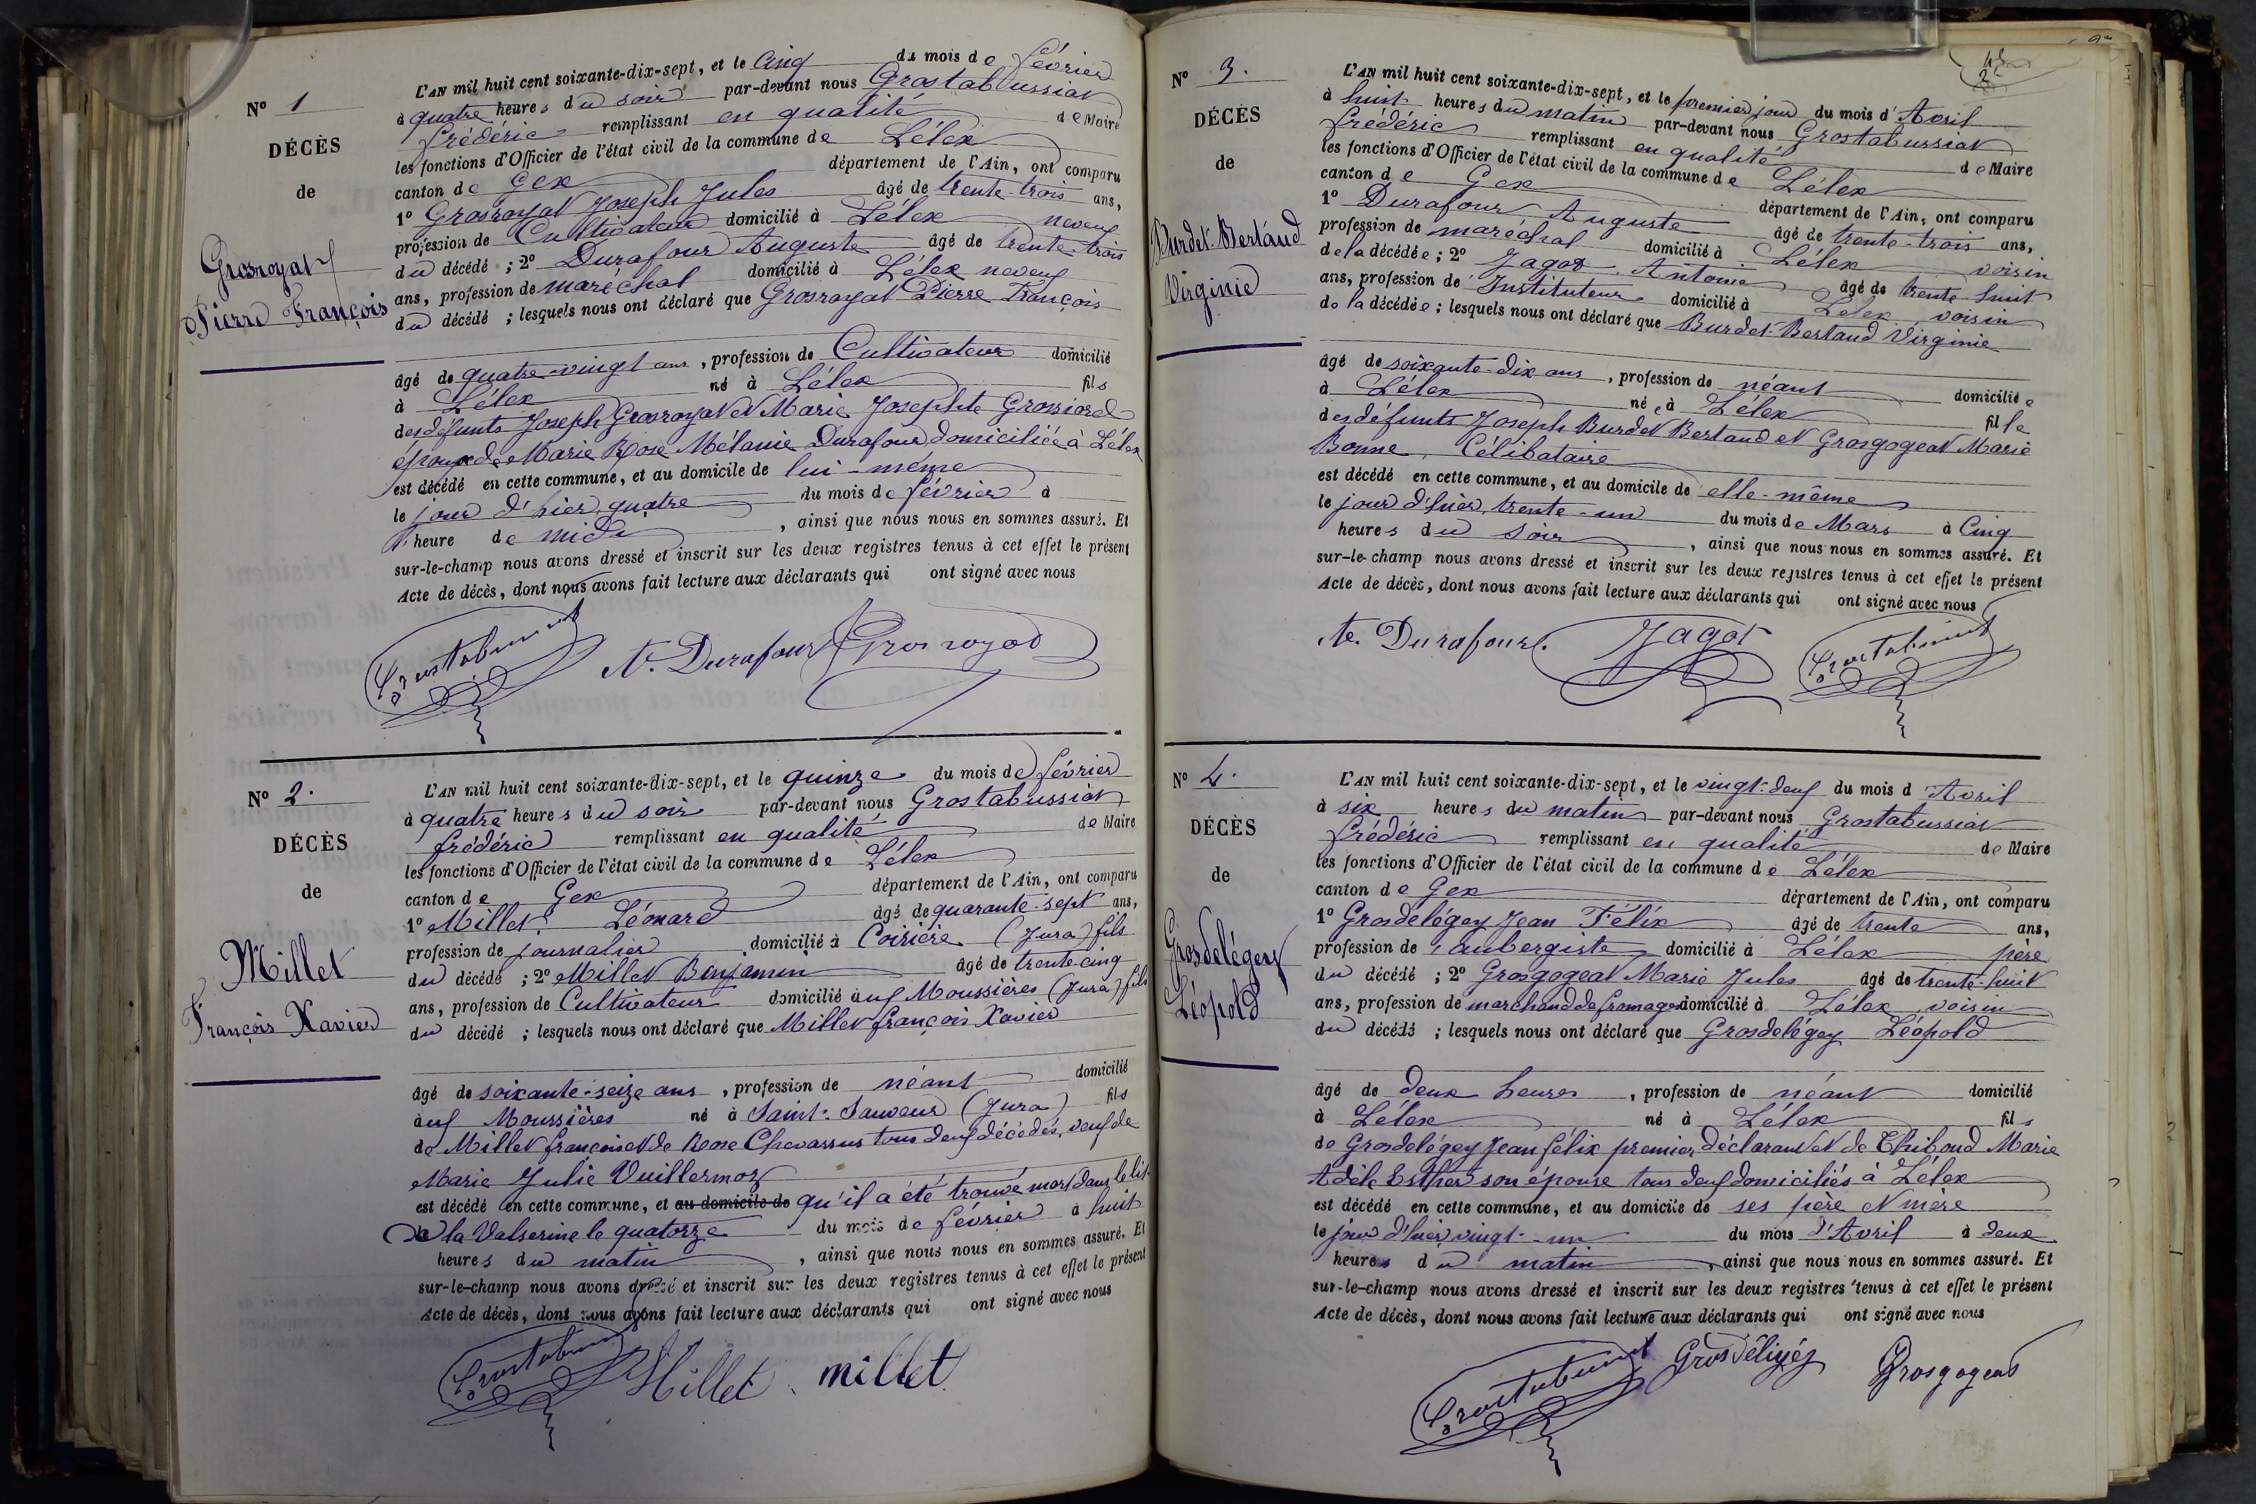 N° 1
DÉCÈS
de
Grosroyat
Pierre François
L'AN mil huit cent soixante-dix-sept, et le Cinq du mois de février
à quatre heures du soir par-devant nous Grostabussiat
frédéric remplissant en qualité de Maire
les fonctions d'Officier de l'état civil de la commune de Lélex
canton de Gex département de l'Ain, ont comparu
1° Grosroyat Joseph Jules âgé de trente-trois ans,
profession de Cultivateur domicilié à Lélex neveu
du décédé ; 2° Durafour Auguste âgé de trente-trois
ans, profession de maréchal domicilié à Lélex neveu
du décédé ; lesquels nous ont déclaré que Grosroyat Pierre François
âgé de quatre-vingt ans, profession de Cultivateur domicilié
à Lélex né à Lélex fils
des défunts Joseph Grosroyat et Marie Josephte Grossiord
époux de Marie Rose Mélanie Durafour domiciliée à Lélex
est décédé en cette commune, et au domicile de lui-même
le jour d'hier, quatre du mois de février à
l'heure de midi, ainsi que nous nous en sommes assuré. Et
sur-le-champ nous avons dressé et inscrit sur les deux registres tenus à cet effet le présent
Acte de décès, dont nous avons fait lecture aux déclarants qui ont signé avec nous
Grostabussiat A. Durafour Grosroyat
N° 2.
DÉCÈS
de
Millet
François Xavier
L'AN mil huit cent soixante-dix-sept, et le quinze du mois de février
à quatre heures du soir par-devant nous Grostabussiat
frédéric remplissant en qualité de Maire
les fonctions d'Officier de l'état civil de la commune de Lélex
canton de Gex département de l'Ain, ont comparu
1° Millet Léonard âgé de quarante-sept ans,
profession de journalier domicilié à Coirière (Jura) fils
du décédé ; 2° Millet Benjamin âgé de trente-cinq
ans, profession de Cultivateur domicilié aux Moussières (Jura) fils
du décédé ; lesquels nous ont déclaré que Millet françois Xavier
âgé de soixante-seize ans, profession de néant domicilié
aux Moussières né à Saint-Sauveur (Jura) fils
de Millet françois et de Rose Chevassus tous deux décédés, veuf de
Marie Julie Vuillermoz
est décédé en cette commune, et au domicile de qu'il a été trouvé mort dans le lit
de la Valserine le quatorze du mois de février à huit
heures du matin, ainsi que nous nous en sommes assuré. Et
sur-le-champ nous avons dressé et inscrit sur les deux registres tenus à cet effet le présent
Acte de décès, dont nous avons fait lecture aux déclarants qui ont signé avec nous
Grostabussiat Millet millet
N° 3.
DÉCÈS
de
Burdet-Bertaud
Virginie
L'AN mil huit cent soixante-dix-sept, et le premier jour du mois d'Avril
à huit heures du matin par-devant nous Grostabussiat
frédéric remplissant en qualité de Maire
les fonctions d'Officier de l'état civil de la commune de Lélex
canton de Gex département de l'Ain, ont comparu
1° Durafour Auguste âgé de trente-trois ans,
profession de maréchal domicilié à Lélex voisin
de la décédée ; 2° Jagot Antoine âgé de trente-huit
ans, profession de Instituteur domicilié à Lélex voisin
de la décédée ; lesquels nous ont déclaré que Burdet-Bertaud Virginie
âgé de soixante-dix ans, profession de néant domiciliée
à Lélex née à Lélex fille
des défunts Joseph Burdet Bertaud et Grosgogeat Marie
Bonne, Célibataire
est décédé en cette commune, et au domicile de elle-même
le jour d'hier, trente-un du mois de Mars à Cinq
heures du soir, ainsi que nous nous en sommes assuré. Et
sur-le-champ nous avons dressé et inscrit sur les deux registres tenus à cet effet le présent
Acte de décès, dont nous avons fait lecture aux déclarants qui ont signé avec nous
A. Durafour. Jagot Grostabussiat
N° 4.
DÉCÈS
de
Grosdelégey
Léopold
L'AN mil huit cent soixante-dix-sept, et le vingt-deux du mois d'Avril
à six heures du matin par-devant nous Grostabussiat
frédéric remplissant en qualité de Maire
les fonctions d'Officier de l'état civil de la commune de Lélex
canton de Gex département de l'Ain, ont comparu
1° Grosdelégey Jean Félix âgé de trente ans,
profession de aubergiste domicilié à Lélex père
du décédé ; 2° Grosgogeat Marie Jules âgé de trente-huit
ans, profession de marchand de fromages domicilié à Lélex voisin
du décédé ; lesquels nous ont déclaré que Grosdelégey Léopold
âgé de deux heures, profession de néant domicilié
à Lélex né à Lélex fils
de Grosdelégey Jean félix premier déclarant et de Thiboud Marie
Adèle Esther son épouse tous deux domiciliés à Lélex
est décédé en cette commune, et au domicile de ses père et mère
le jour d'hier vingt-un du mois d'Avril à deux
heures du matin, ainsi que nous nous en sommes assuré. Et
sur-le-champ nous avons dressé et inscrit sur les deux registres tenus à cet effet le présent
Acte de décès, dont nous avons fait lecture aux déclarants qui ont signé avec nous
Grostabussiat Grosdéligéy Grosgogeat